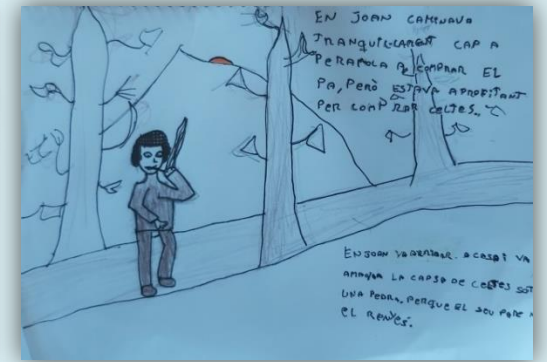 EN JOAN CAMINAVA
TRANQUIL·LAMENT CAP A
PERAFOLA A COMPRAR EL
PA, PERÒ ESTAVA APROFITANT
PER COMPRAR CELTES.
EN JOAN VA ARRIBAR A CASA I VA
AMAGAR LA CAPSA DE CELTES SOT
UNA PEDRA, PERQUE EL SEU PARE
EL RENYÉS.